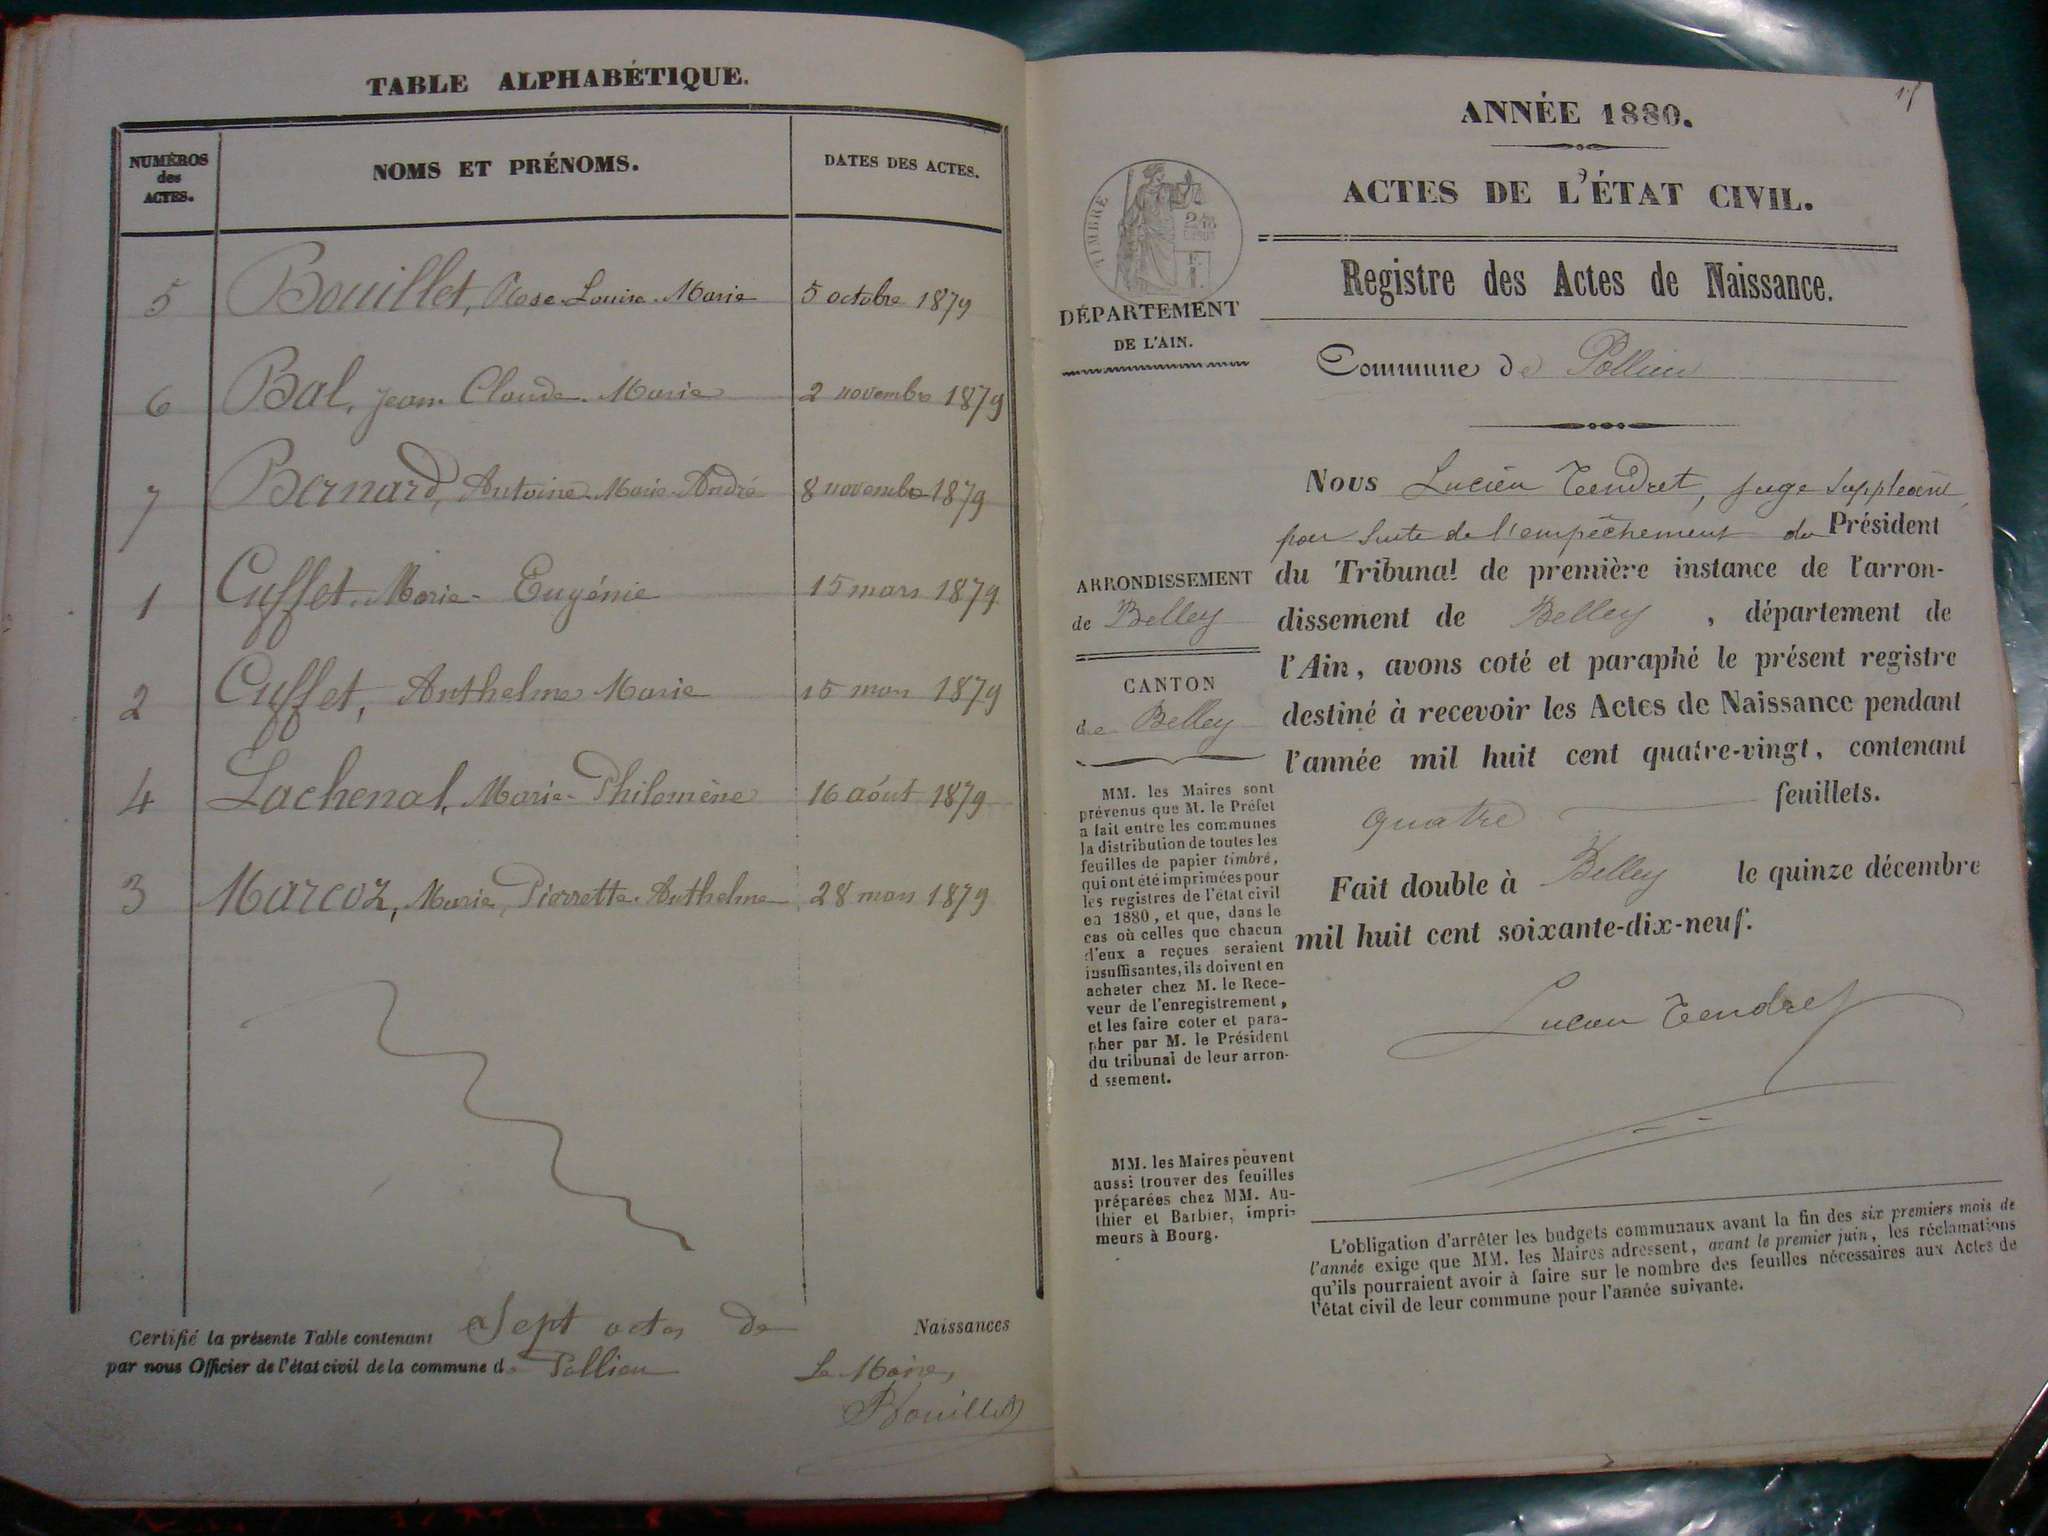 TABLE ALPHABÉTIQUE.
NUMÉROS
des
ACTES.
NOMS ET PRÉNOMS.
DATES DES ACTES.
5 Bouillet, Rose Louise Marie 5 octobre 1879
6 Bal, Jean Claude Marie 2 novembre 1879
7 Bernard, Antoine Marie André 8 novembre 1879
1 Cuffet Marie Eugénie 15 mars 1879
2 Cuffet, Anthelme Marie 15 mars 1879
4 Lachenal, Marie Philomène 16 août 1879
3 Marcoz, Marie Pierrette Anthelme 28 mars 1879
Certifié la présente Table contenant Sept actes de Naissances
par nous Officier de l'état civil de la commune de Pollieu
Le Maire,
Bouillet
15
ANNÉE 1880.
ACTES DE L'ÉTAT CIVIL.
TIMBRE
Registre des Actes de Naissance.
DÉPARTEMENT
DE L'AIN.
Commune de Pollieu
ARRONDISSEMENT
de Belley
CANTON
de Belley
MM. les Maires sont
prévenus que M. le Préfet
a fait entre les communes
la distribution de toutes les
feuilles de papier timbré,
qui ont été imprimées pour
les registres de l'état civil
en 1880, et que, dans le
cas où celles que chacun
d'eux a reçues seraient
insuffisantes, ils doivent en
acheter chez M. le Rece-
veur de l'enregistrement,
et les faire coter et para-
pher par M. le Président
du tribunal de leur arron-
d ssement.
MM. les Maires peuvent
aussi trouver des feuilles
préparées chez MM. Au-
thier et Barbier, impri-
meurs à Bourg.
Nous Lucien Tendret, juge suppléant,
par suite de l'empêchement du Président
du Tribunal de première instance de l'arron-
dissement de Belley, département de
l'Ain, avons coté et paraphé le présent registre
destiné à recevoir les Actes de Naissance pendant
l'année mil huit cent quatre-vingt, contenant
quatre feuillets.
Fait double à Belley le quinze décembre
mil huit cent soixante-dix-neuf.
Lucien Tendret
L'obligation d'arrêter les budgets communaux avant la fin des six premiers mois de
l'année exige que MM. les Maires adressent, avant le premier juin, les réclamations
qu'ils pourraient avoir à faire sur le nombre des feuilles nécessaires aux Actes de
l'état civil de leur commune pour l'année suivante.